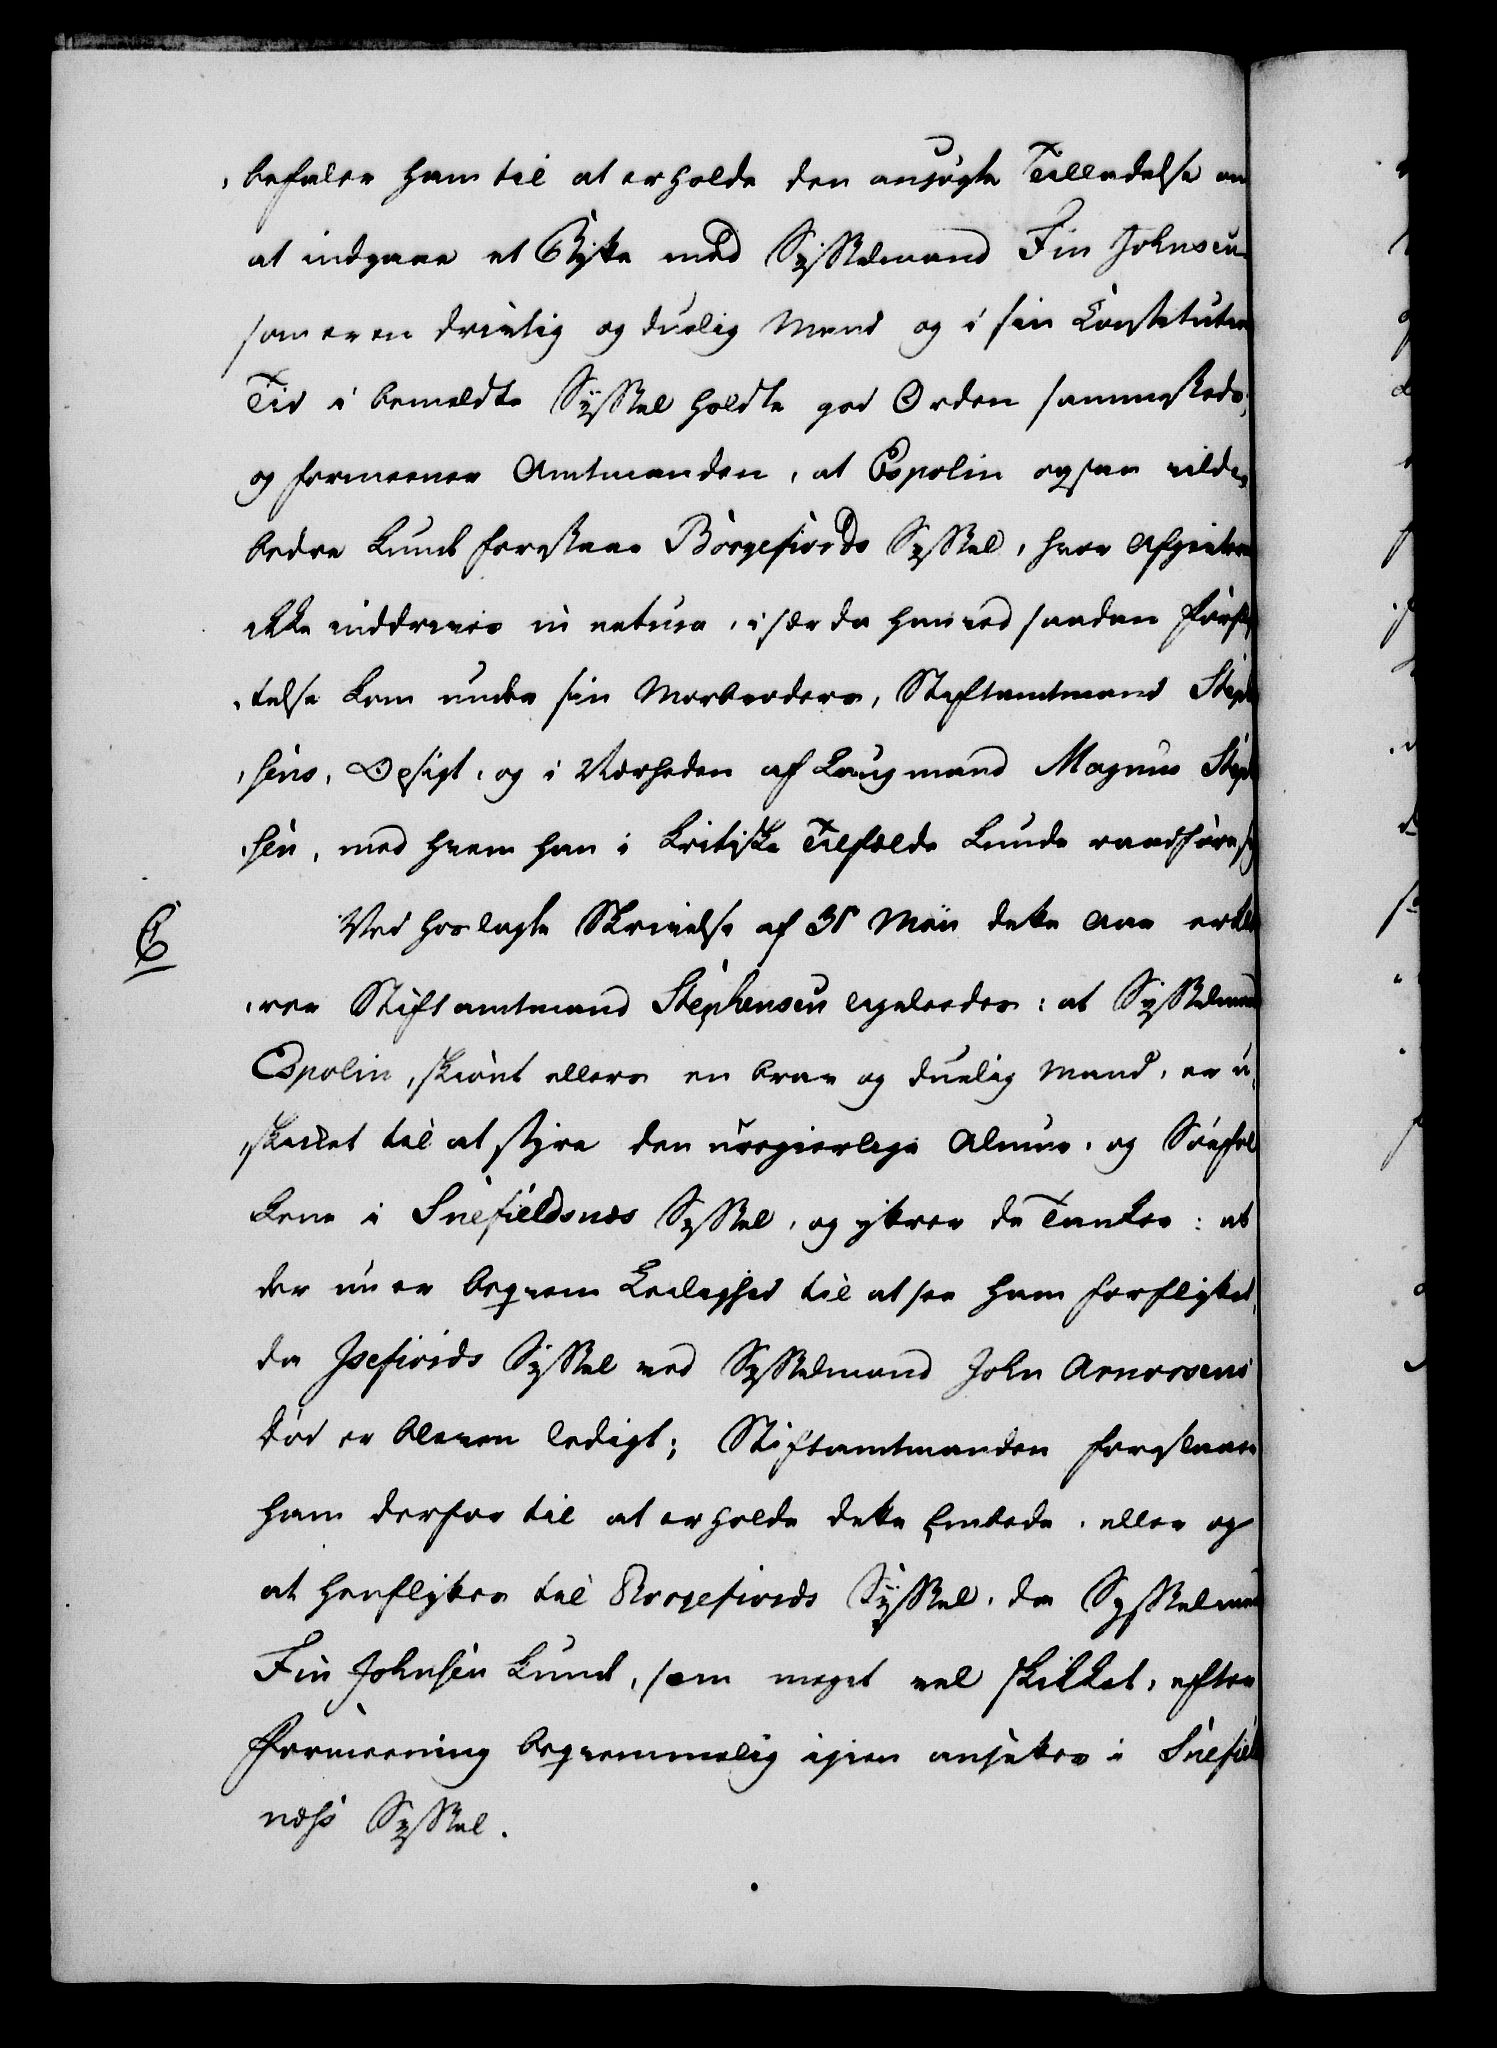 befaler ham til at erholde den ansøgte Tilladelse om
at indgaae et Bytte med Sysselmand Fin Johnsen
som er en driftig og duelig Mand og i sin Constitutions
Tid i bemeldte Syssel holdte god Orden sammesteds,
og formeener Amtmanden, at Espolin ogsaa vilde
bedre kunde forestaae Borgefiords Syssel, hvor Afgivterne
ikke inddrives in natura, især da han ved saadan Forflyt
telse kom under sin Morbroders, Stiftamtmand Stephen
sens, Opsigt, og i Nærheden af Laugmand Magnus Stephen
sen, med hvem han i kritiske Tilfælde kunde raadføre sig
C Ved hoslagte Skrivelse af 31 Maii dette Aar erklæ
rer Stiftamtmand Stephensen ligeledes: at Sysselmand
Espolin, skiønt ellers en brav og duelig Mand, er u
skikket til at styre den uregierlige Almue og Søefol
kene i Snefieldsnes Syssel, og yttrer de Tanker: at
der nu er beqvem Leilighed til at see ham forflyttet,
da Isefiords Syssel ved Sysselmand John Arnorsens
Død er bleven ledigt; Stiftamtmanden foreslaaer
ham derfor til at erholde dette Embede, eller og
at henflyttes til Borgefiords Syssel, da Sysselmand
Fin Johnsen kunde, som meget vel skikket, efter
Formeening beqvemmelig igien ansettes i Snefields
næss Syssel.